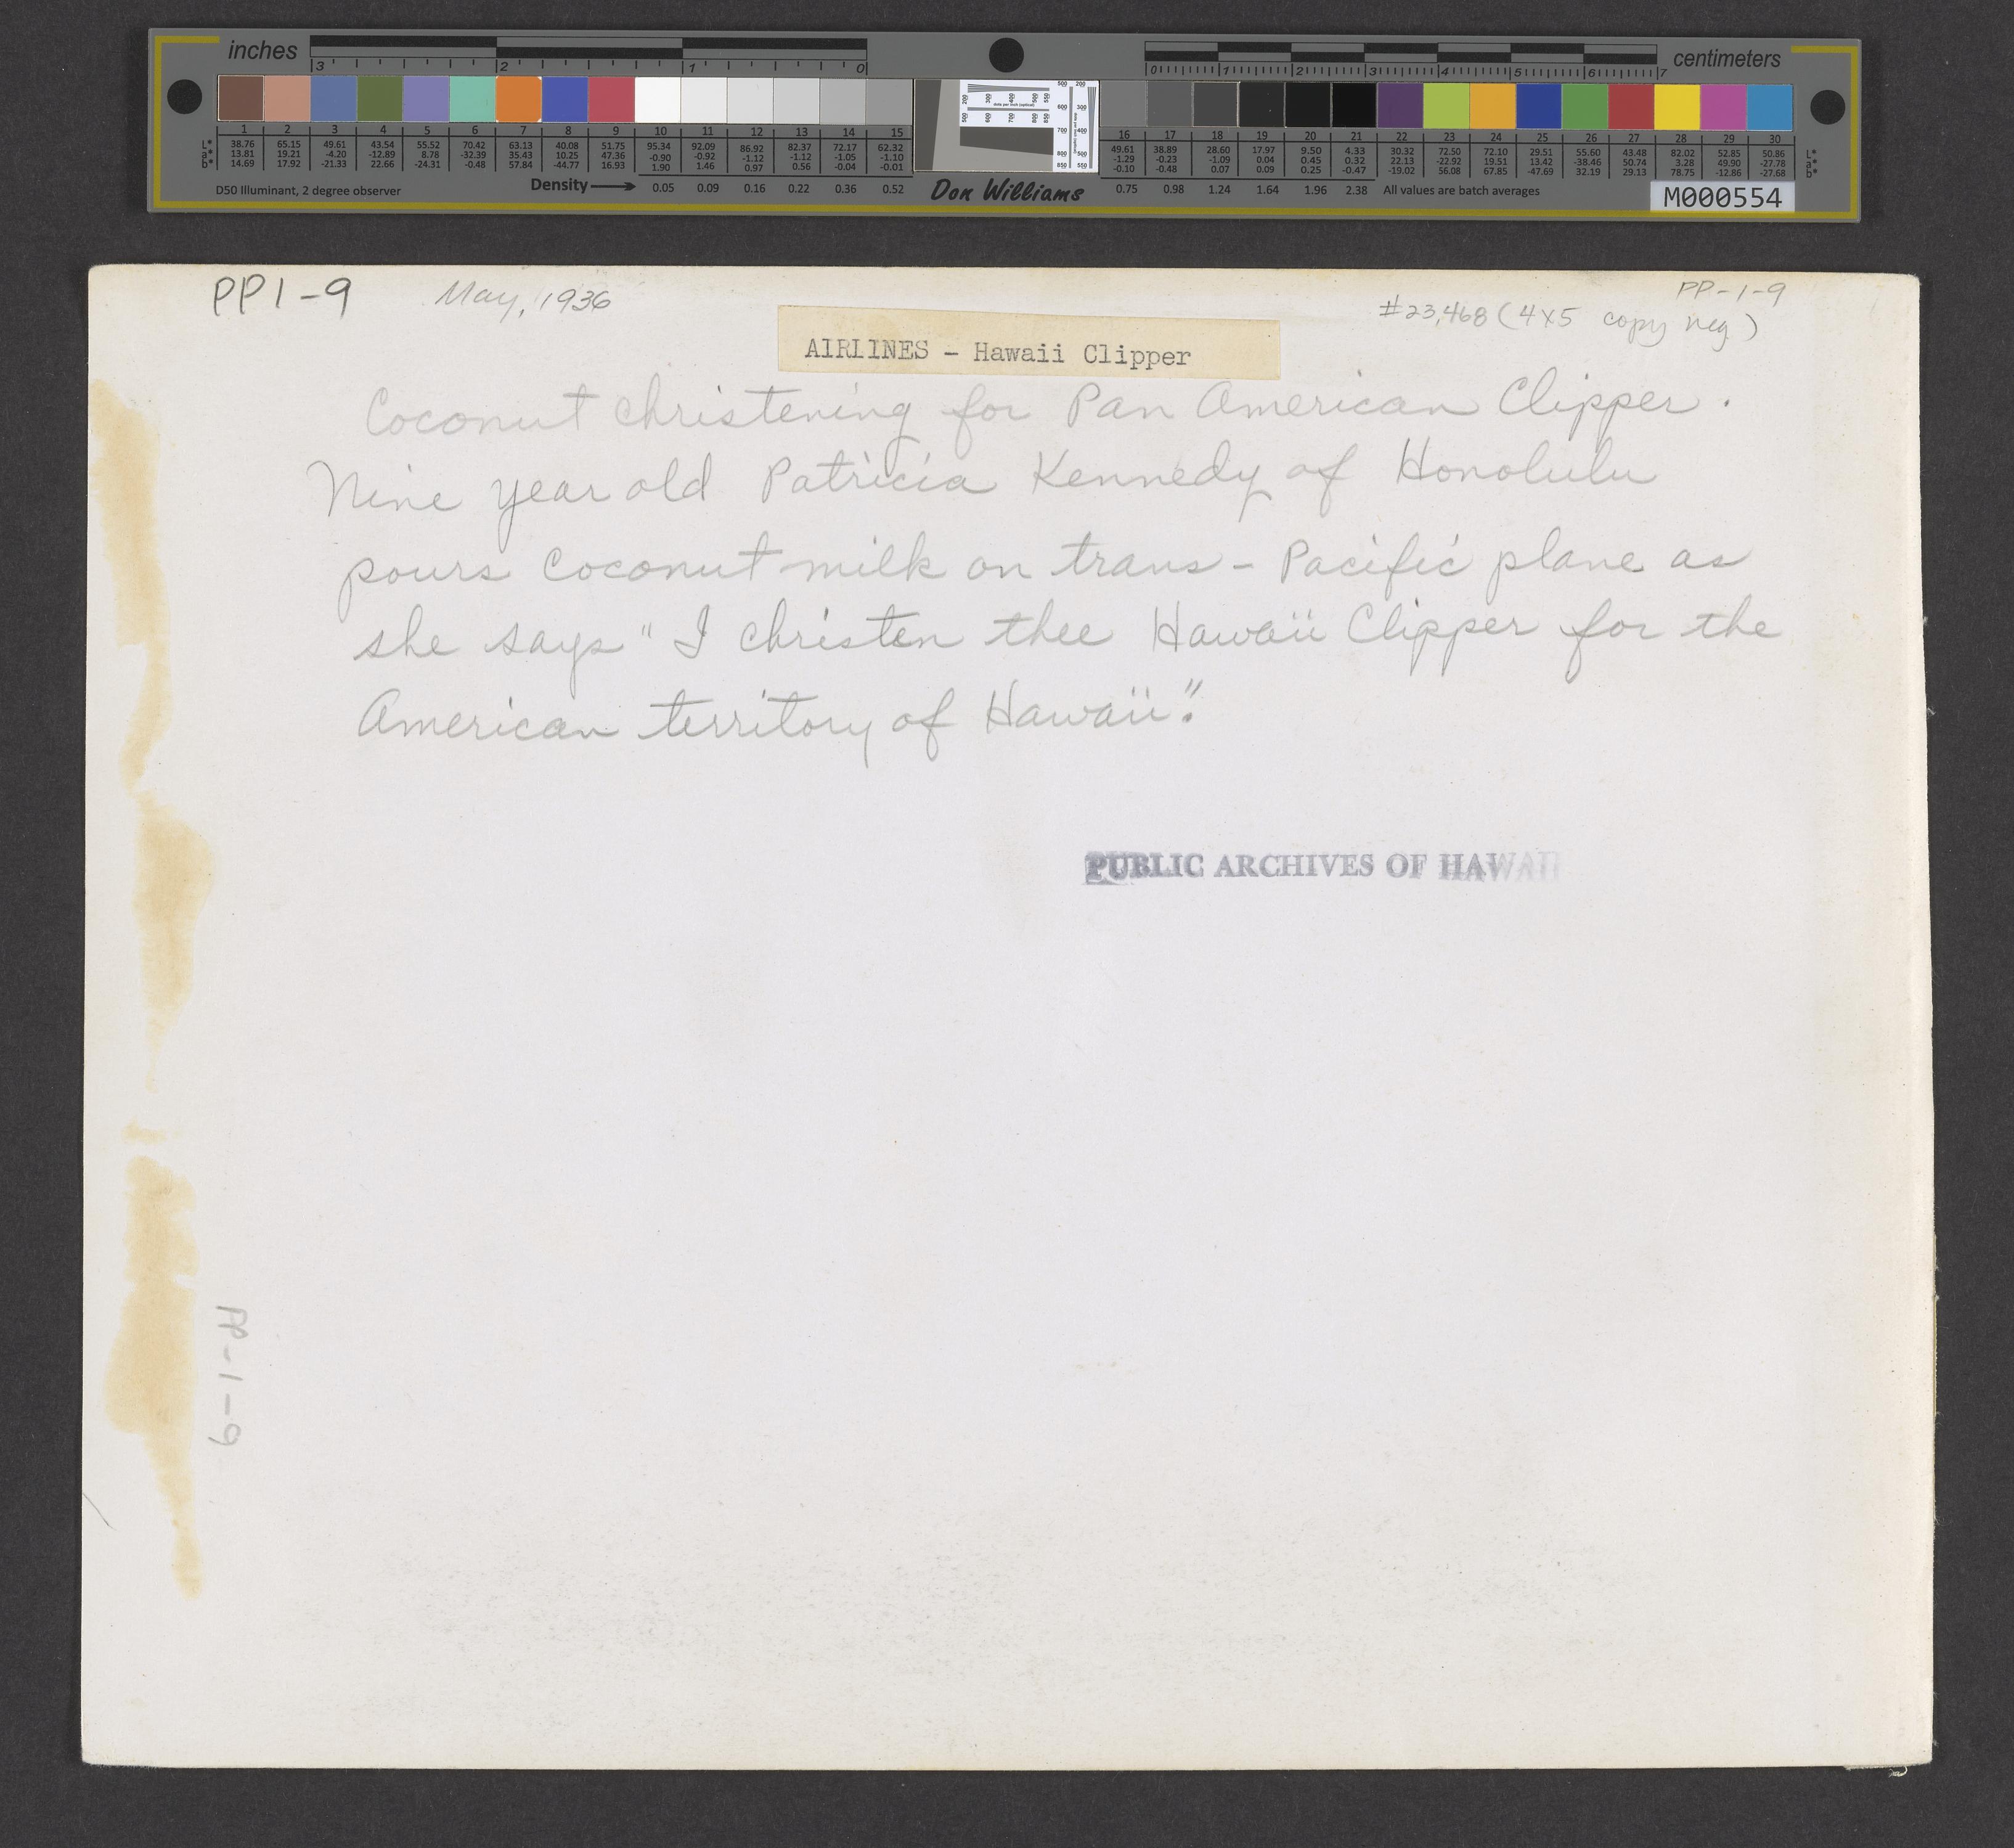 inches
centimeters
3 2 1 0
0 1 2 3 4 5 6 7
1 2 3 4 5 6 7 8 9 10 11 12 13 14 15
L* 38.76 65.15 49.61 43.54 55.52 70.42 63.13 40.08 51.75 95.34 92.09 86.92 82.37 72.17 62.32
a* 13.81 19.21 -4.20 -12.89 8.78 -32.39 35.43 10.25 47.36 -0.90 -0.92 -1.12 -1.12 -1.05 -1.10
b* 14.69 17.92 -21.33 22.66 -24.31 -0.48 57.84 -44.77 16.93 1.90 1.46 0.97 0.56 -0.04 -0.01
D50 Illuminant, 2 degree observer
Density 0.05 0.09 0.16 0.22 0.36 0.52
Don Williams
16 17 18 19 20 21 22 23 24 25 26 27 28 29 30
49.61 38.89 28.60 17.97 9.50 4.33 30.32 72.50 72.10 29.51 55.60 43.48 82.02 52.85 50.86 L*
-1.29 -0.23 -1.09 0.04 0.45 0.32 22.13 -22.92 19.51 13.42 -38.46 50.74 3.28 49.90 -27.78 a*
-0.10 -0.48 0.07 0.09 0.25 -0.47 -19.02 56.08 67.85 -47.69 32.19 29.13 78.75 -12.86 -27.68 b*
0.75 0.98 1.24 1.64 1.96 2.38 All values are batch averages
M000554
PP1-9 May, 1936
PP-1-9
#23,468 (4x5 copy neg)
AIRLINES - Hawaii Clipper
Coconut christening for Pan American Clipper.
Nine year old Patricia Kennedy of Honolulu
pours coconut milk on trans-Pacific plane as
she says "I christen thee Hawaii Clipper for the
American territory of Hawaii".
PUBLIC ARCHIVES OF HAWAII
PP-1-9